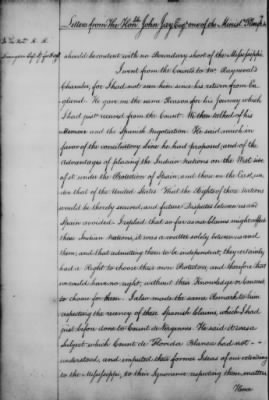 Letter from The Honble John Jay Esqr one of the Minist. Plenip.
should be content with no Boundary short of the Mississippi
I went from the Counts to Mr Rayneval's
Chamber, for I had not seen him since his return from En
gland. He gave me the same Reason for his Journey which
I had just received from the Count. We then talked of his
Memoir and the Spanish Negotiation. He said much in
favor of the conciliatory Line he had proposed, and of the
Advantages of placing the Indian Nations on the West side
of it under the Protection of Spain, and those on the East, un
der that of the United States That the Rights of those Nations
would be thereby secured, and future Disputes between us and
Spain avoided. I replied that so far as our claims might affect
those Indian Nations, it was a matter solely between us and
them; and that admitting them to be independent, they certainly
had a Right to choose their own Protectors, and therefore that
we could have no right, without their Knowledge or Consent
to choose for them. I also made the same Remark to him
respecting the recency of these Spanish Claims, which I had
just before done to Count de Vergennes. He said it was a
Subject which Count de Florida Blanca had not
understood, and imputed their former Ideas of our extending
to the Mississippi, to their Ignorance respecting those matters